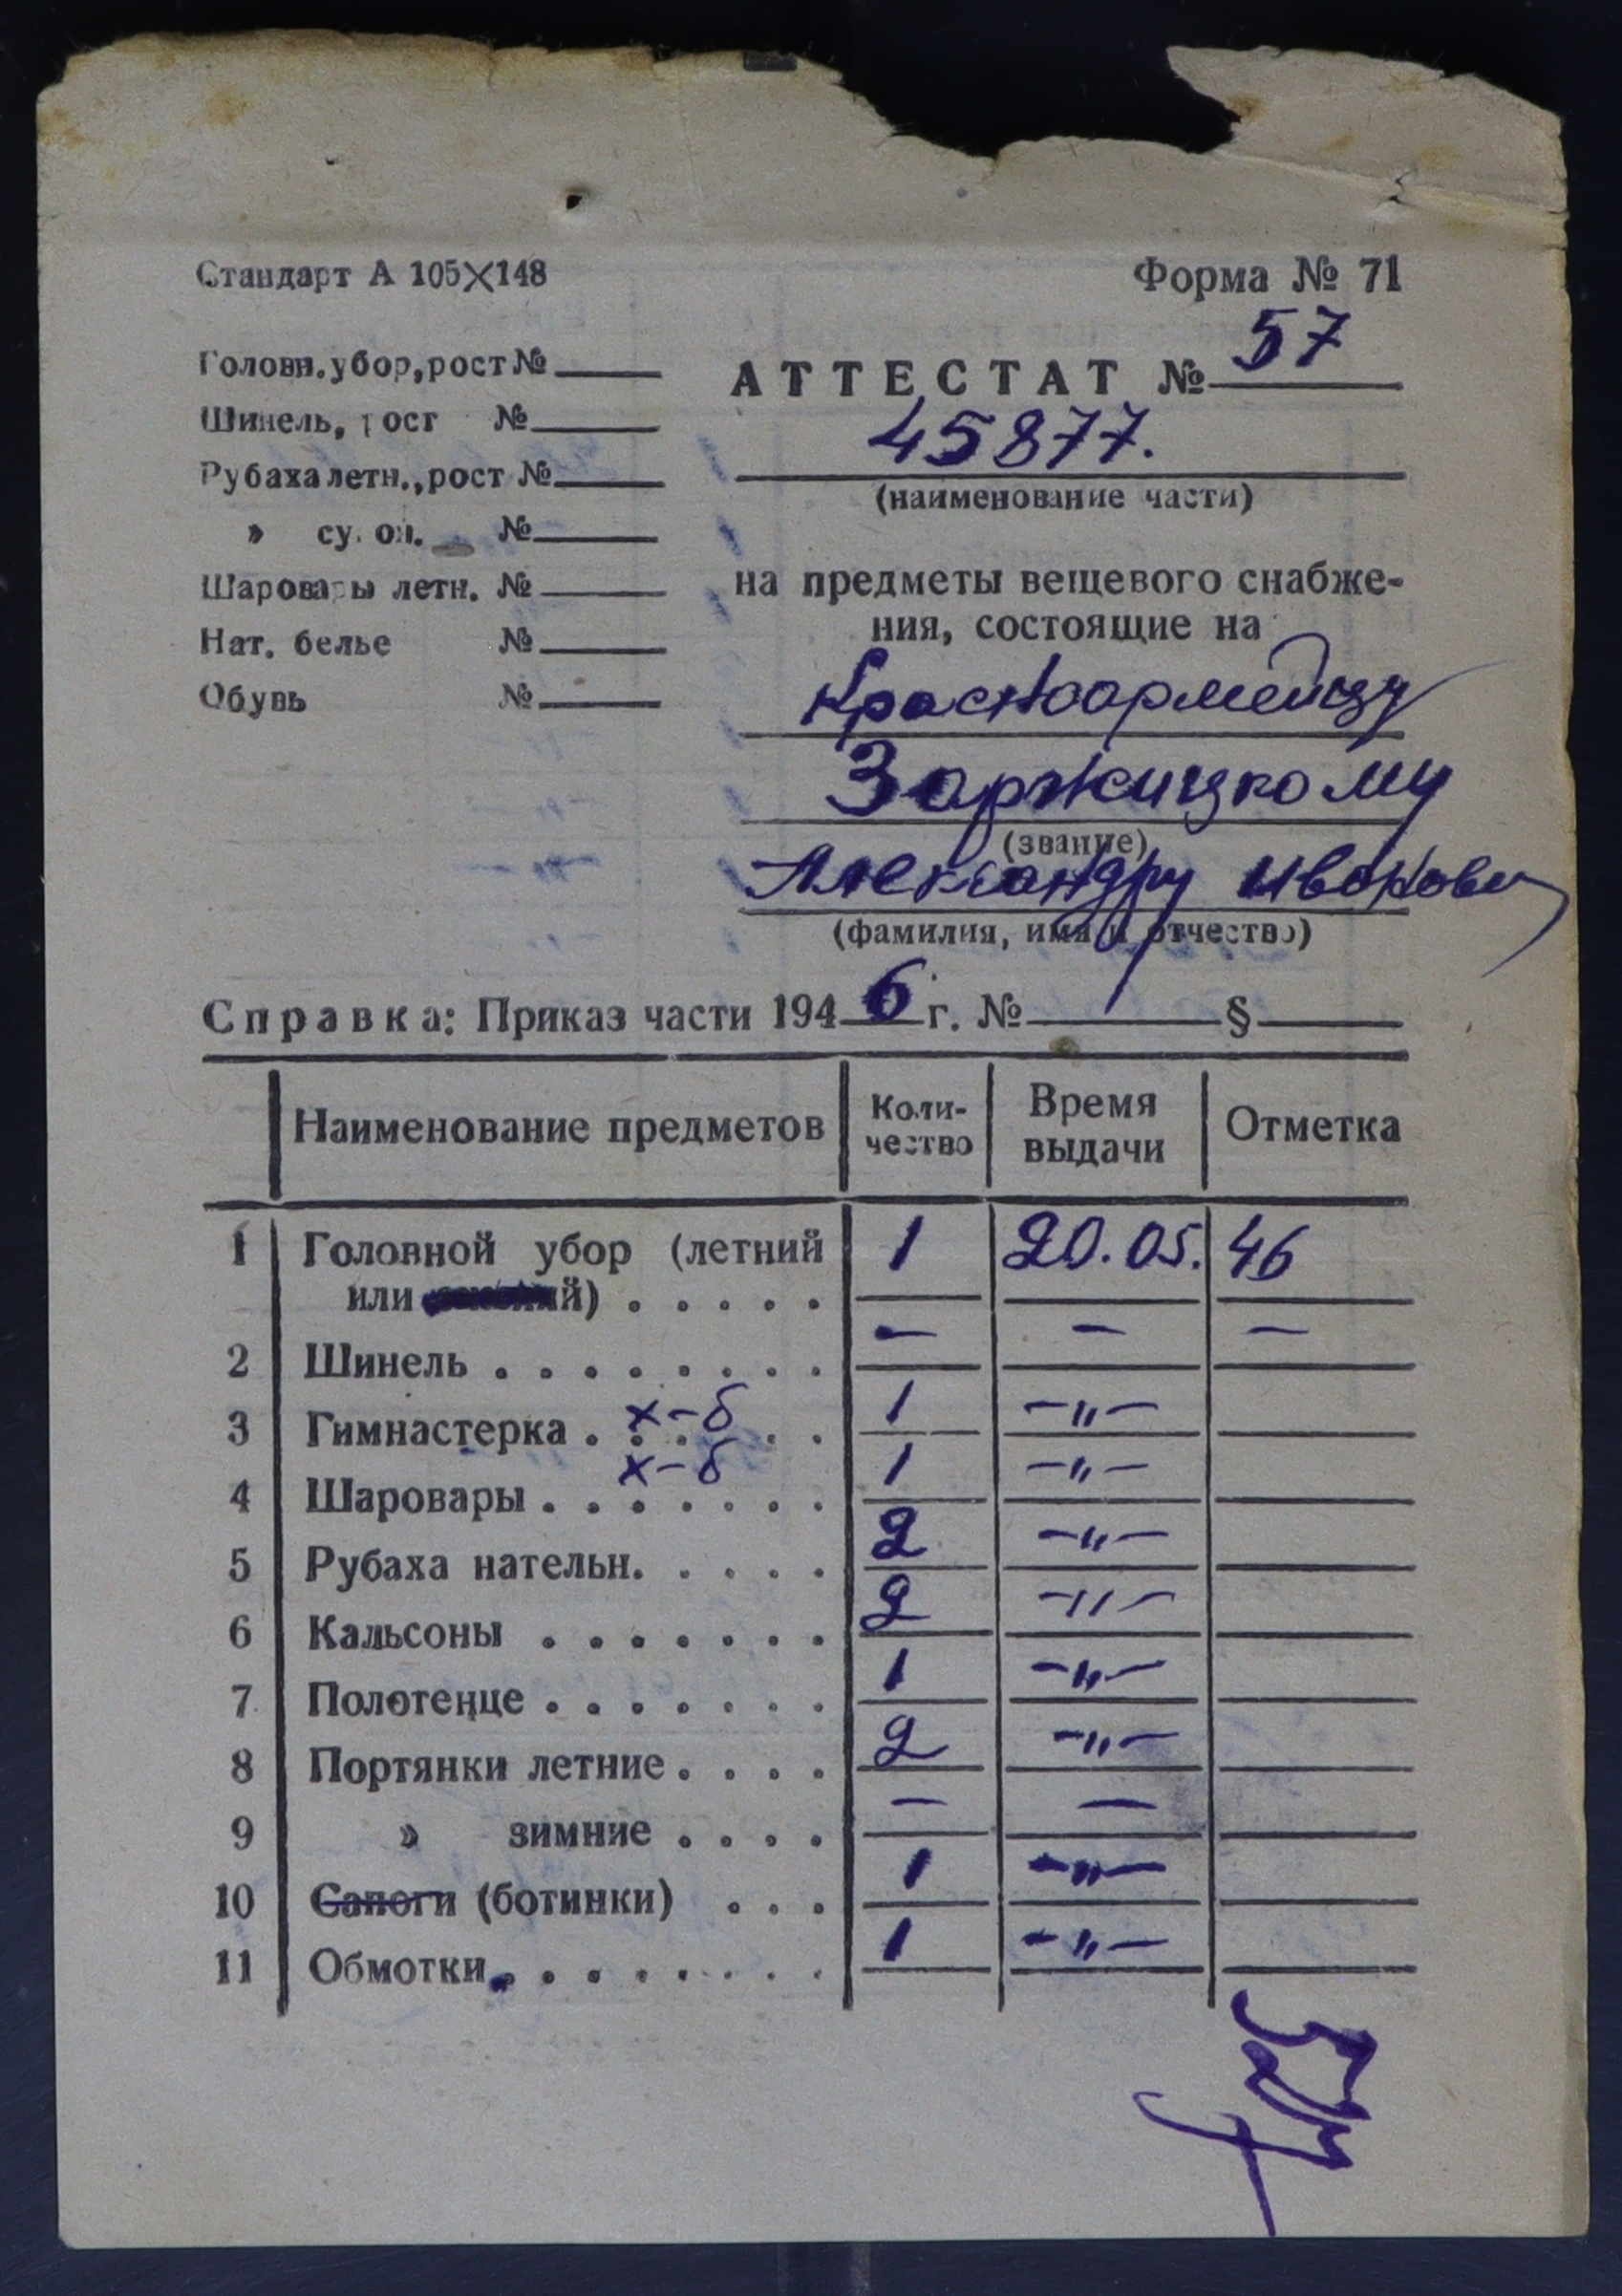 Стандарт А 105×148
Форма № 71
Головн.убор,рост №
Шинель, рост №
Рубаха летн.,рост №
» сукон. №
Шаровары летн. №
Нат. белье №
Обувь №
АТТЕСТАТ № 57
45877.
(наименование части)
на предметы вещевого снабже-
ния, состоящие на
Красноармейцу
Заржицкому
(звание)
Александру Иванович
(фамилия, имя и отчество)
Справка: Приказ части 1946 г. № §
Наименование предметов Коли- Время Отметка
чество выдачи
1 Головной убор (летний 1 20.05. 46
или зимний) . . . . .
2 Шинель . . . . . . . . — — —
3 Гимнастерка . х-б . . . 1 -„-
4 Шаровары . . х-б . . . 1 -„-
5 Рубаха нательн. . . . . 2 -„-
6 Кальсоны . . . . . . . 2 -„-
7 Полотенце . . . . . . . 1 -„-
8 Портянки летние . . . . 2 -„-
9 » зимние . . . . — —
10 Сапоги (ботинки) . . . 1 -„-
11 Обмотки . . . . . . . . 1 -„-